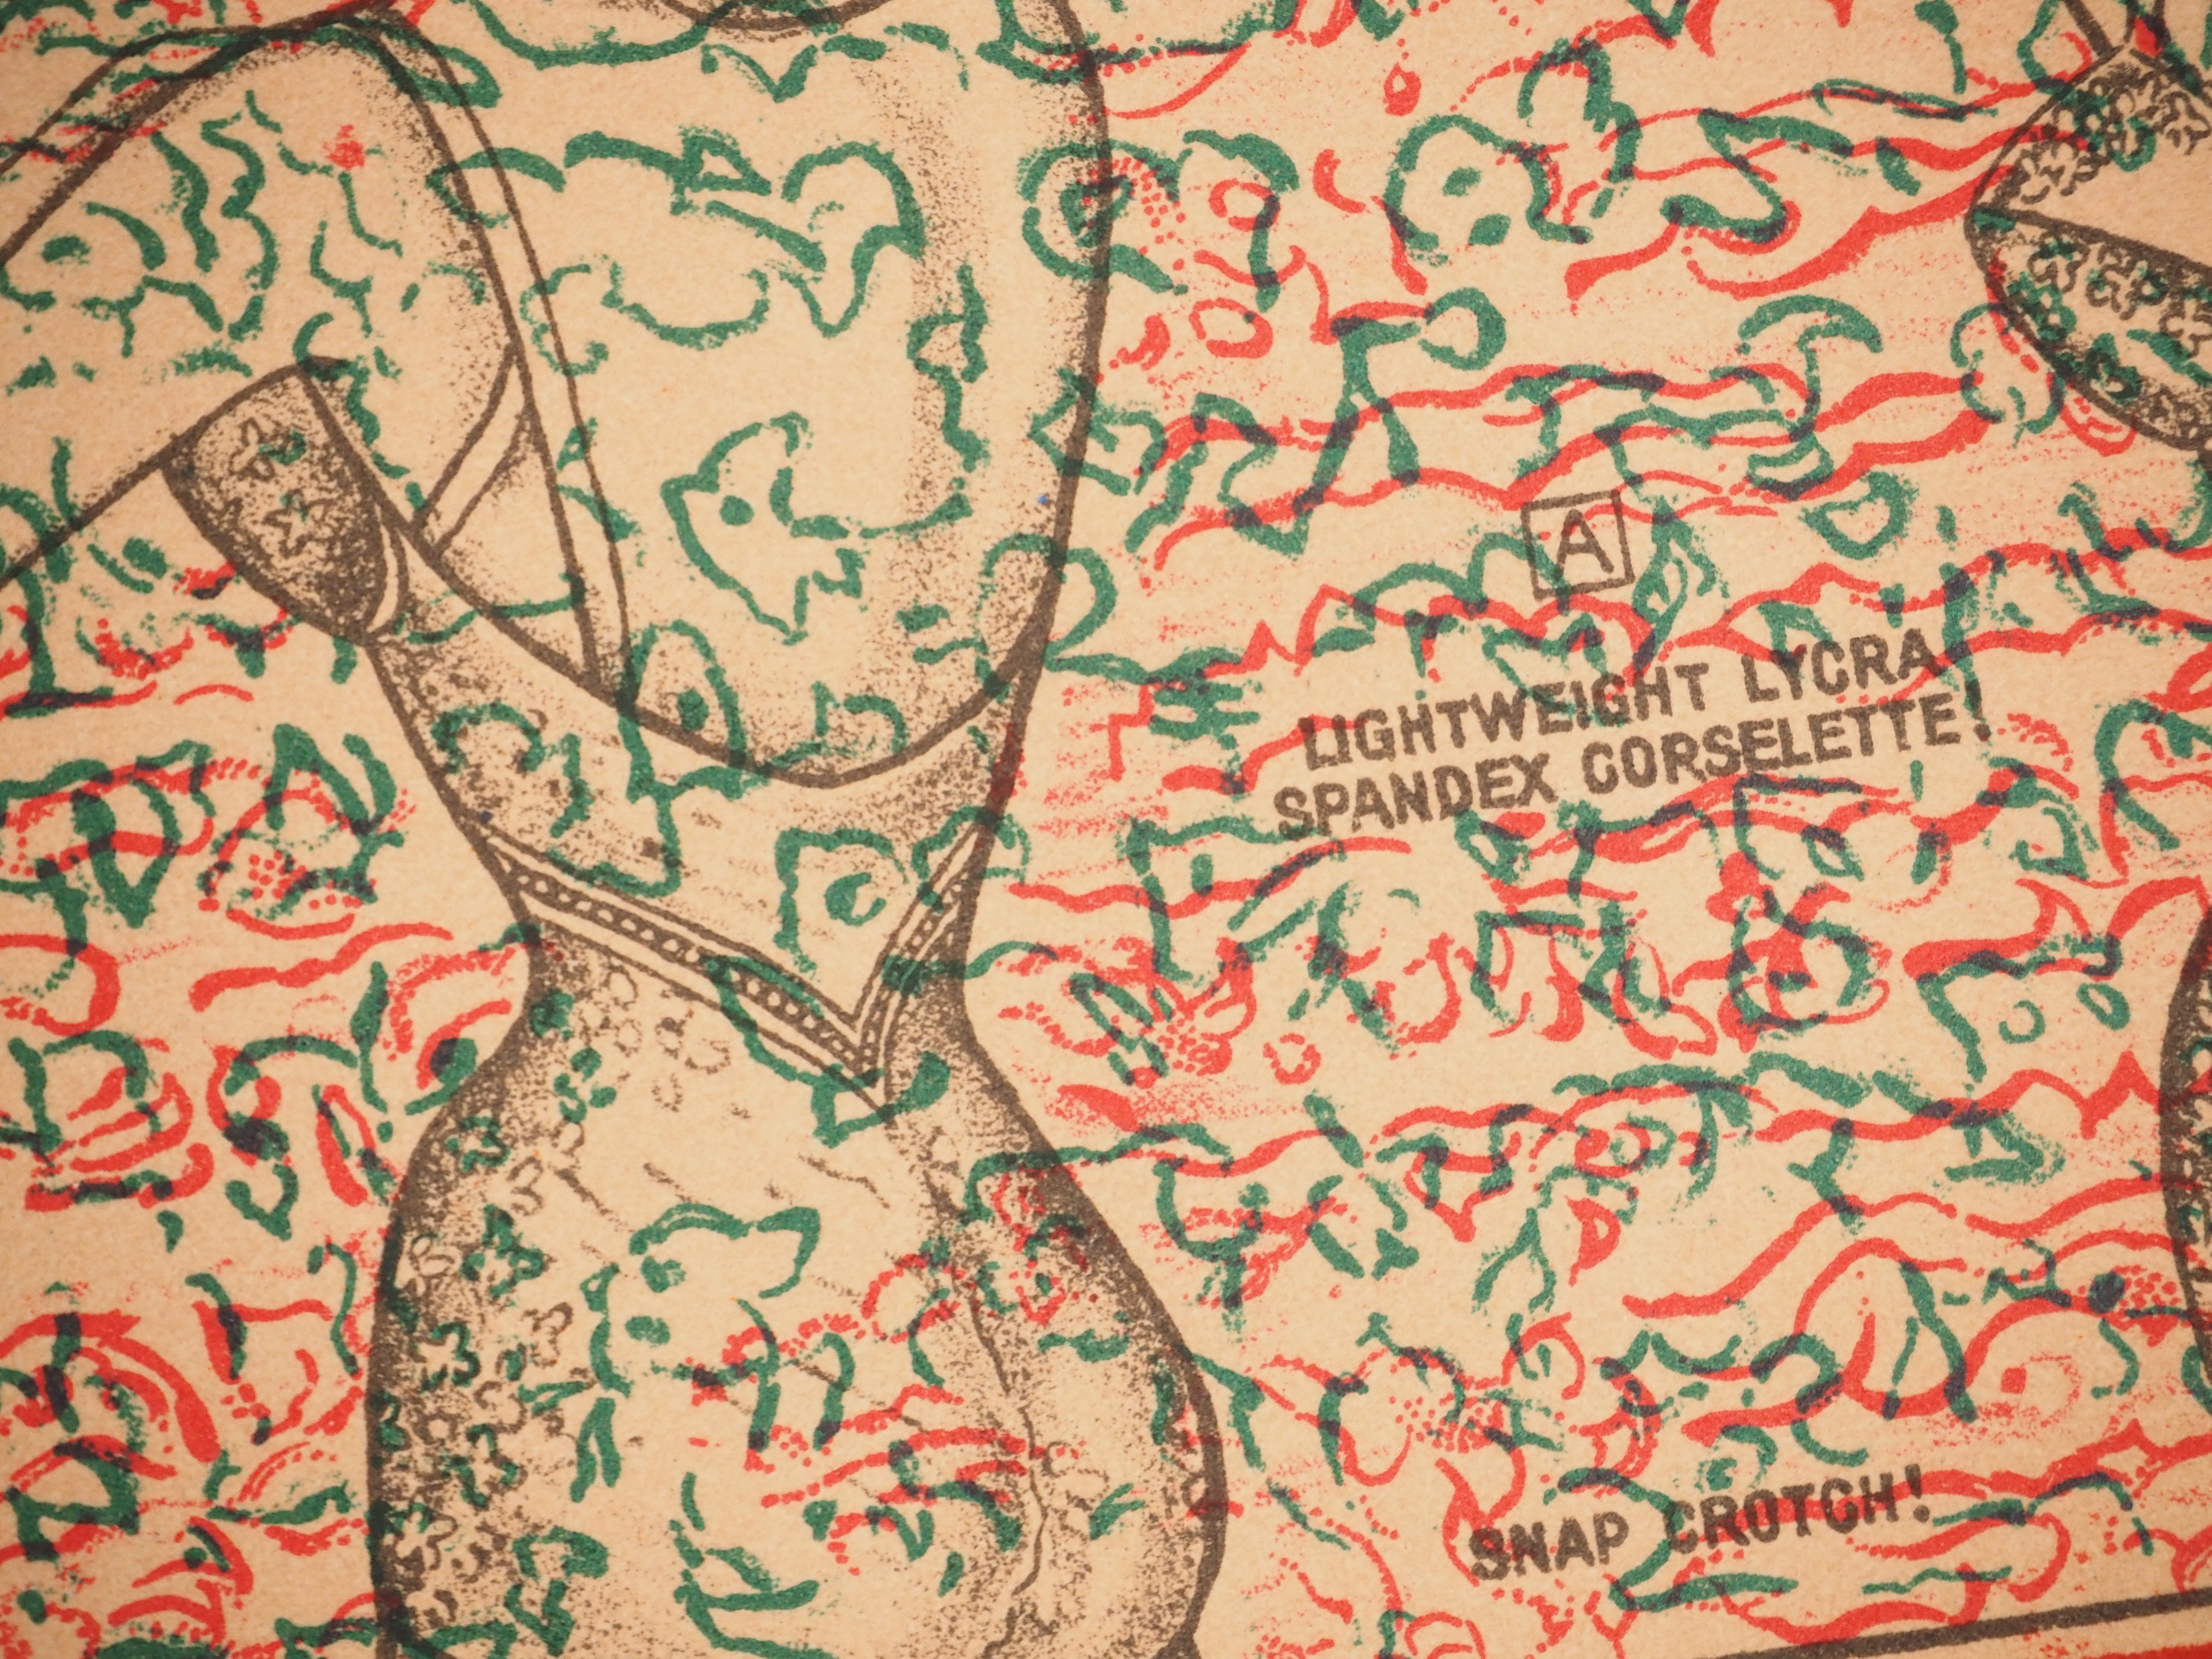 A
LIGHTWEIGHT LYCRA
SPANDEX CORSELETTE!
SNAP CROTCH!